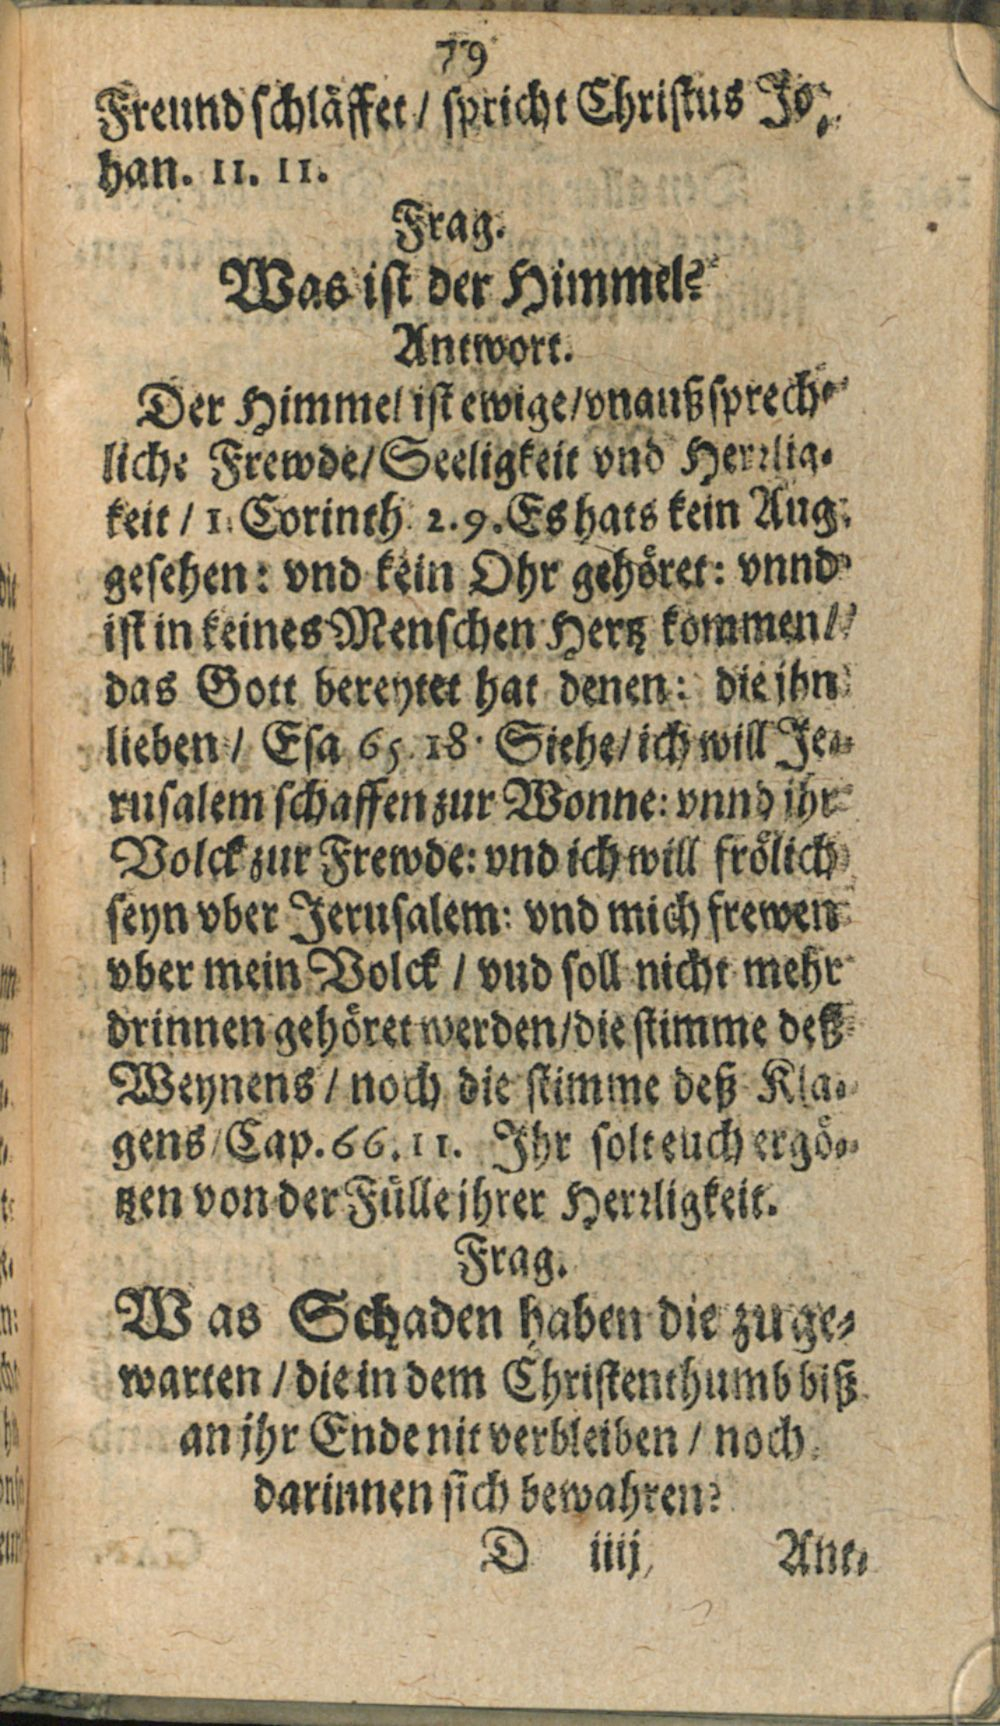 79
Freund schläffet / spricht Christus Jo-
han. 11. 11.
Frag.
Was ist der Himmel?
Antwort.
Der Himmel ist ewige / vnaußsprech-
liche Frewde / Seeligkeit vnd Herrlig-
keit / 1. Corinth. 2. 9. Es hats kein Aug
gesehen: vnd kein Ohr gehöret: vnnd
ist in keines Menschen Hertz kommen /
das Gott bereytet hat denen: die jhn
lieben / Esa 65. 18. Siehe / ich will Je-
rusalem schaffen zur Wonne: vnnd jhr
Volck zur Frewde: vnd ich will frölich
seyn vber Jerusalem: vnd mich frewen
vber mein Volck / vud soll nicht mehr
drinnen gehöret werden / die stimme deß
Weynens / noch die stimme deß Kla-
gens / Cap. 66. 11. Jhr solt euch ergö-
tzen von der Fülle jhrer Herrligkeit.
Frag.
Was Schaden haben die zu ge-
warten / die in dem Christenthumb biß
an jhr Ende nit verbleiben / noch
darinnen sich bewahren?
D iiij Ant-